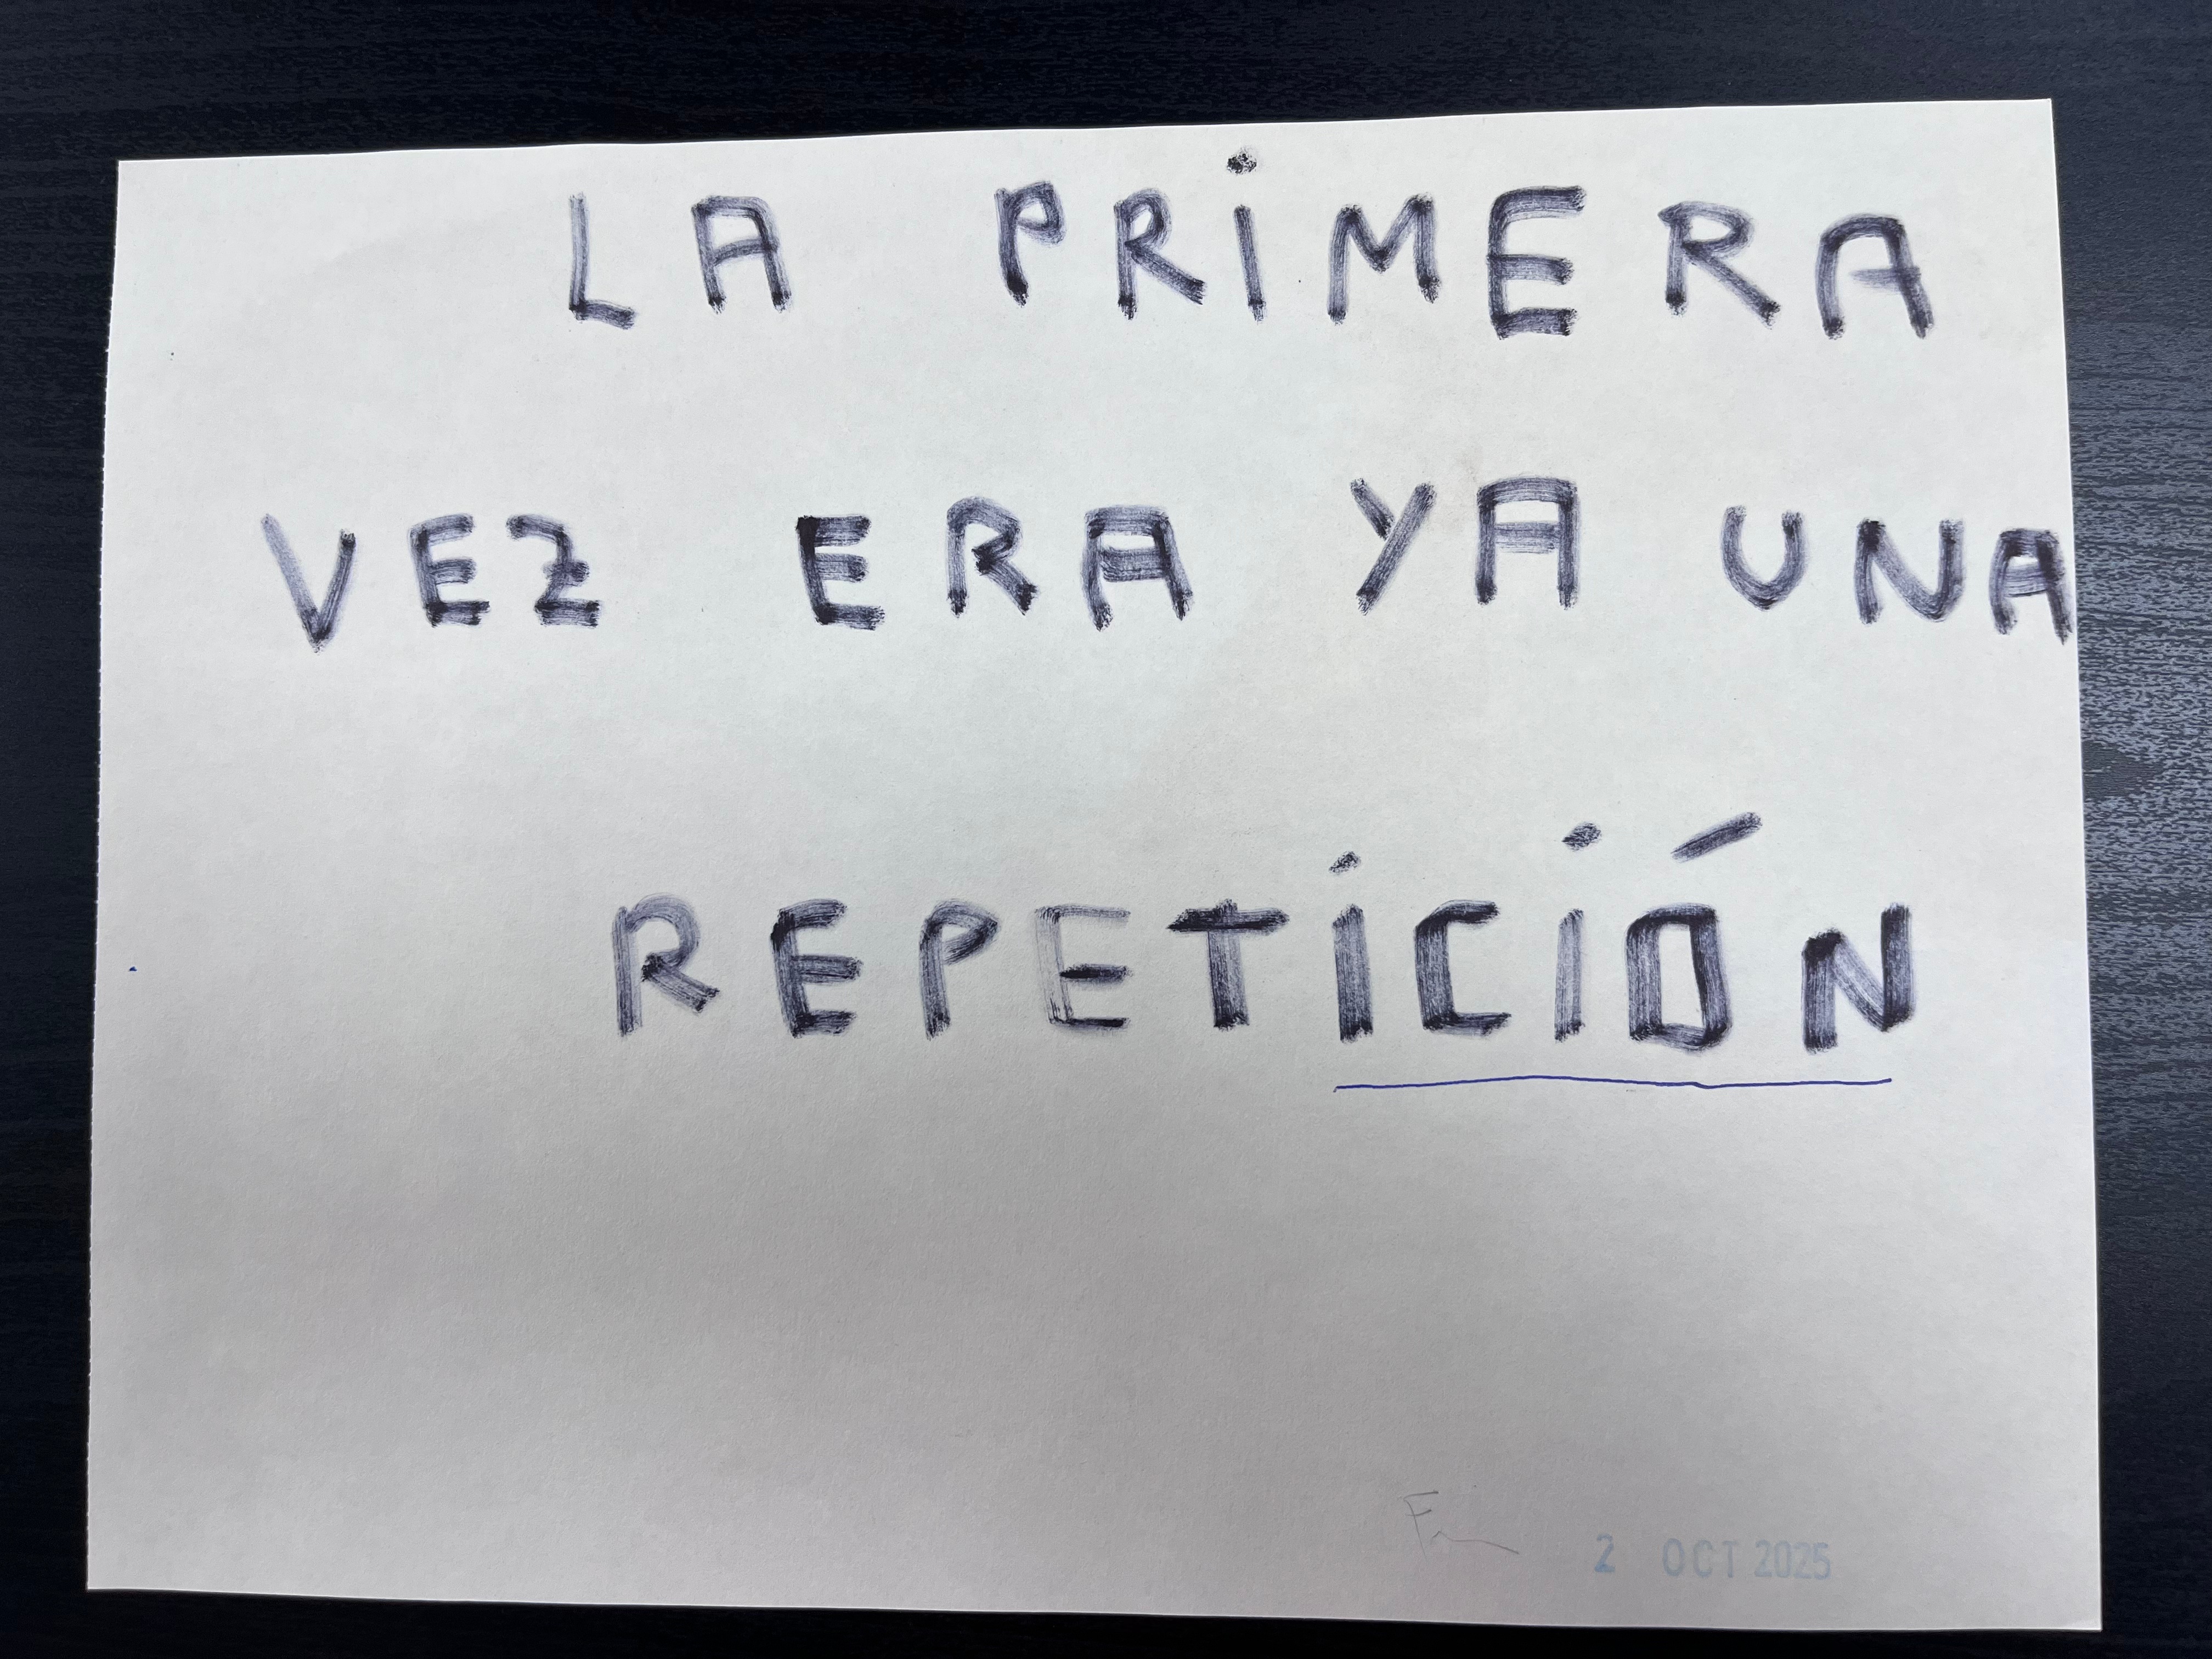 LA PRiMERA
VEZ ERA YA UNA
REPETiCiÓN
2 OCT 2025